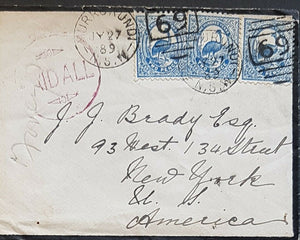 MURRURUNDI
JY 27
89
N.S.W
69
69
PAID ALL
J. J. Brady Esq.
93 West 134 Street
New York
U. S.
America